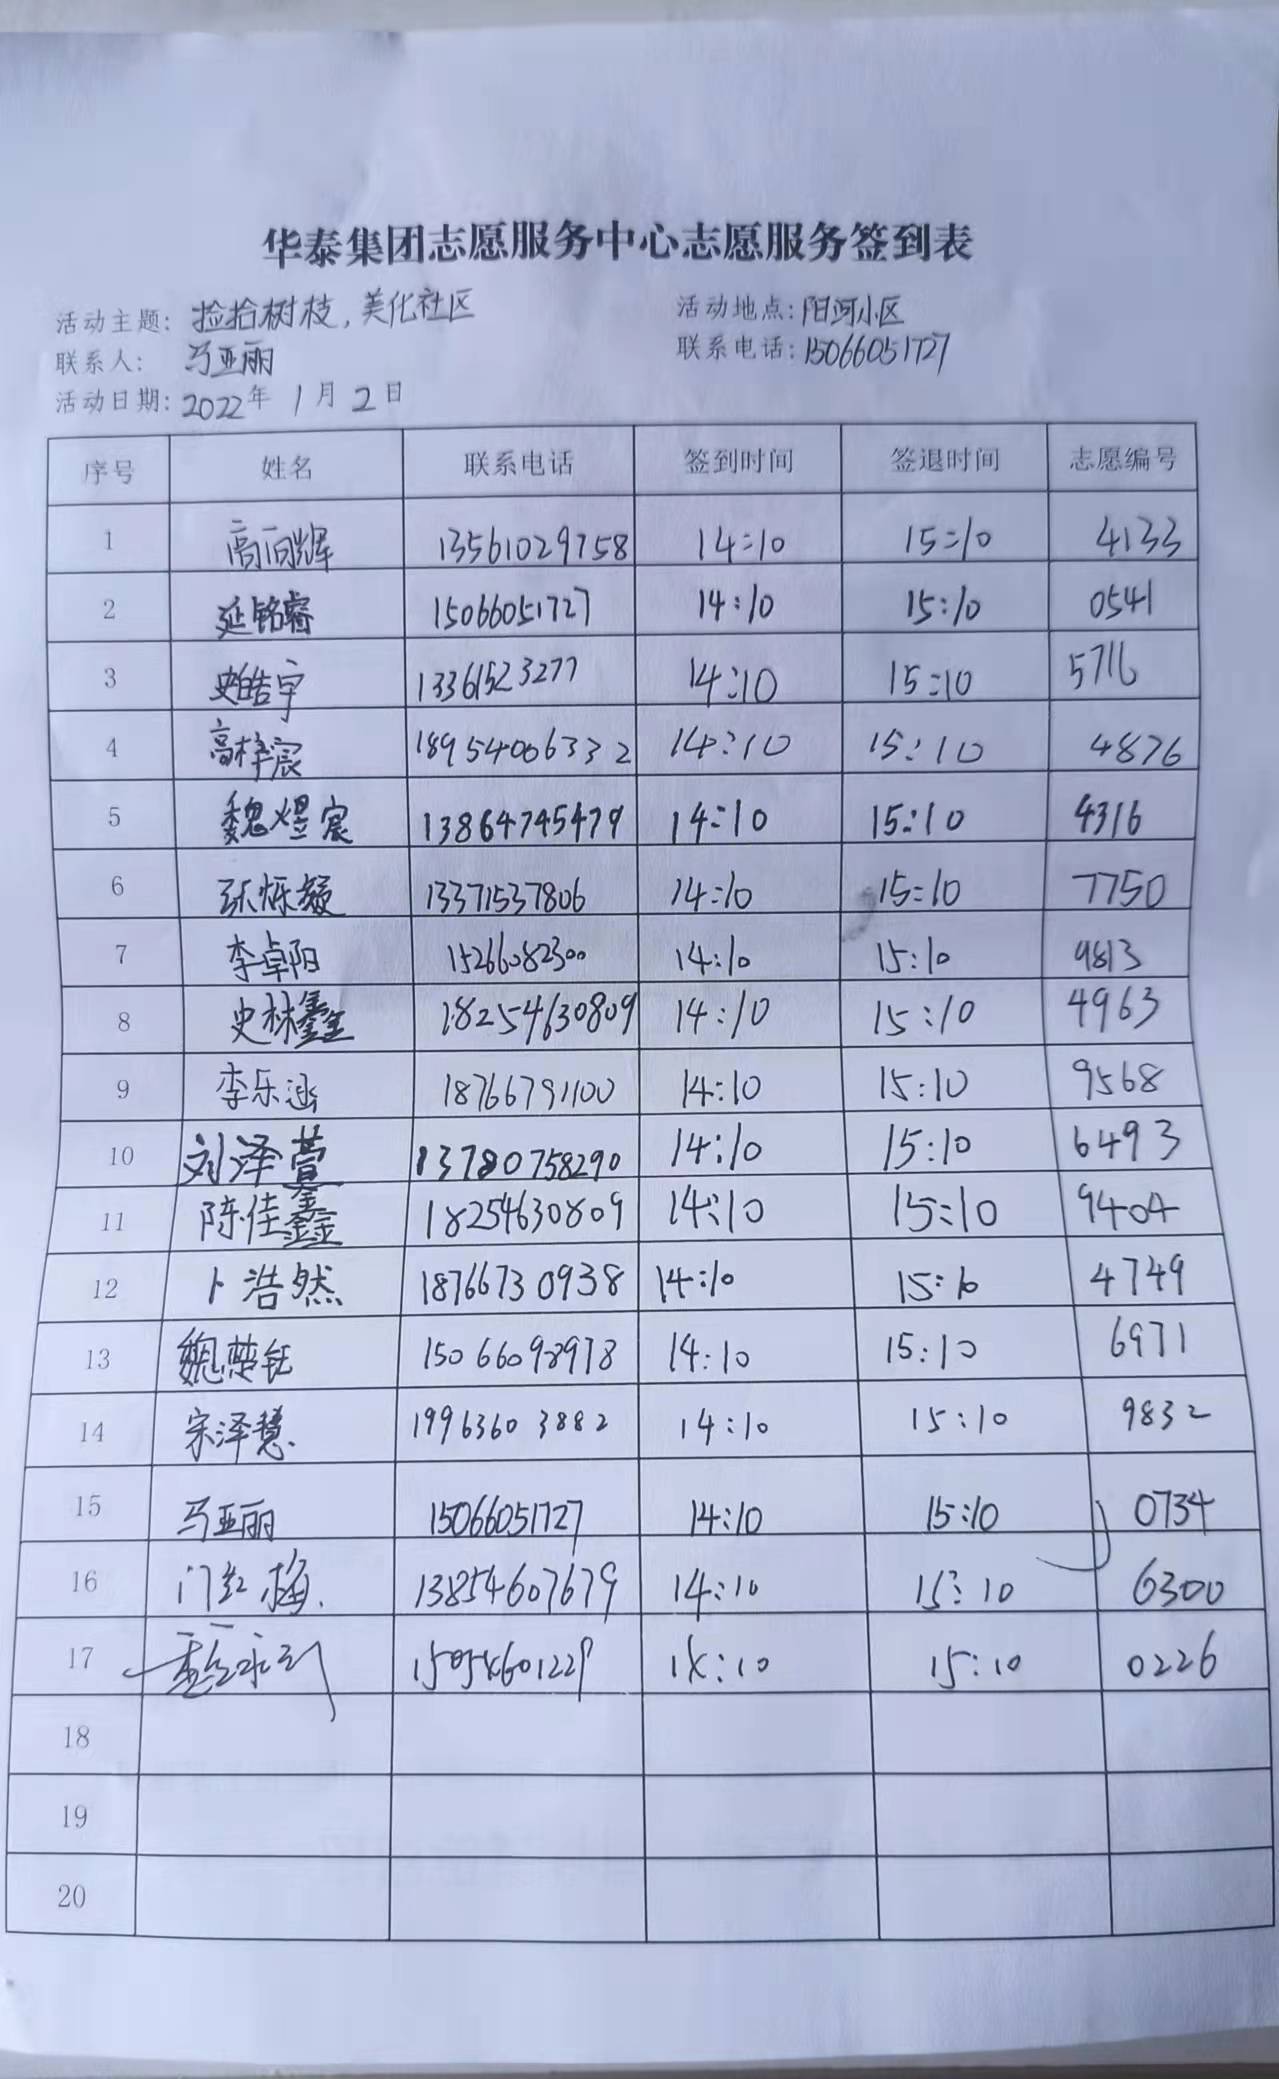 华泰集团志愿服务中心志愿服务签到表
活动主题: 捡拾树枝,美化社区 活动地点: 阳河小区
联系人: 马亚丽 联系电话: 15066051727
活动日期: 2022年 1月2日
序号 姓名 联系电话 签到时间 签退时间 志愿编号
1 高向辉 13561029758 14:10 15:10 4133
2 延铭睿 15066051727 14:10 15:10 0541
3 史皓宇 13361523277 14:10 15:10 5716
4 高梓宸 18954006332 14:10 15:10 4876
5 魏煜宸 13864745479 14:10 15:10 4316
6 张烁凝 13371537806 14:10 15:10 7750
7 李卓阳 15266082300 14:10 15:10 9813
8 史林鑫 18254630809 14:10 15:10 4963
9 李乐涵 18766791100 14:10 15:10 9568
10 刘泽萱 13780758290 14:10 15:10 6493
11 陈佳鑫 18254630809 14:10 15:10 9404
12 卜浩然 18766730938 14:10 15:10 4749
13 魏楚钰 15066098978 14:10 15:10 6971
14 宋泽慧 19963603882 14:10 15:10 9832
15 马亚丽 15066051727 14:10 15:10 0734
16 门红梅 13854607679 14:10 15:10 6300
17 15954601229 14:10 15:10 0226
18
19
20